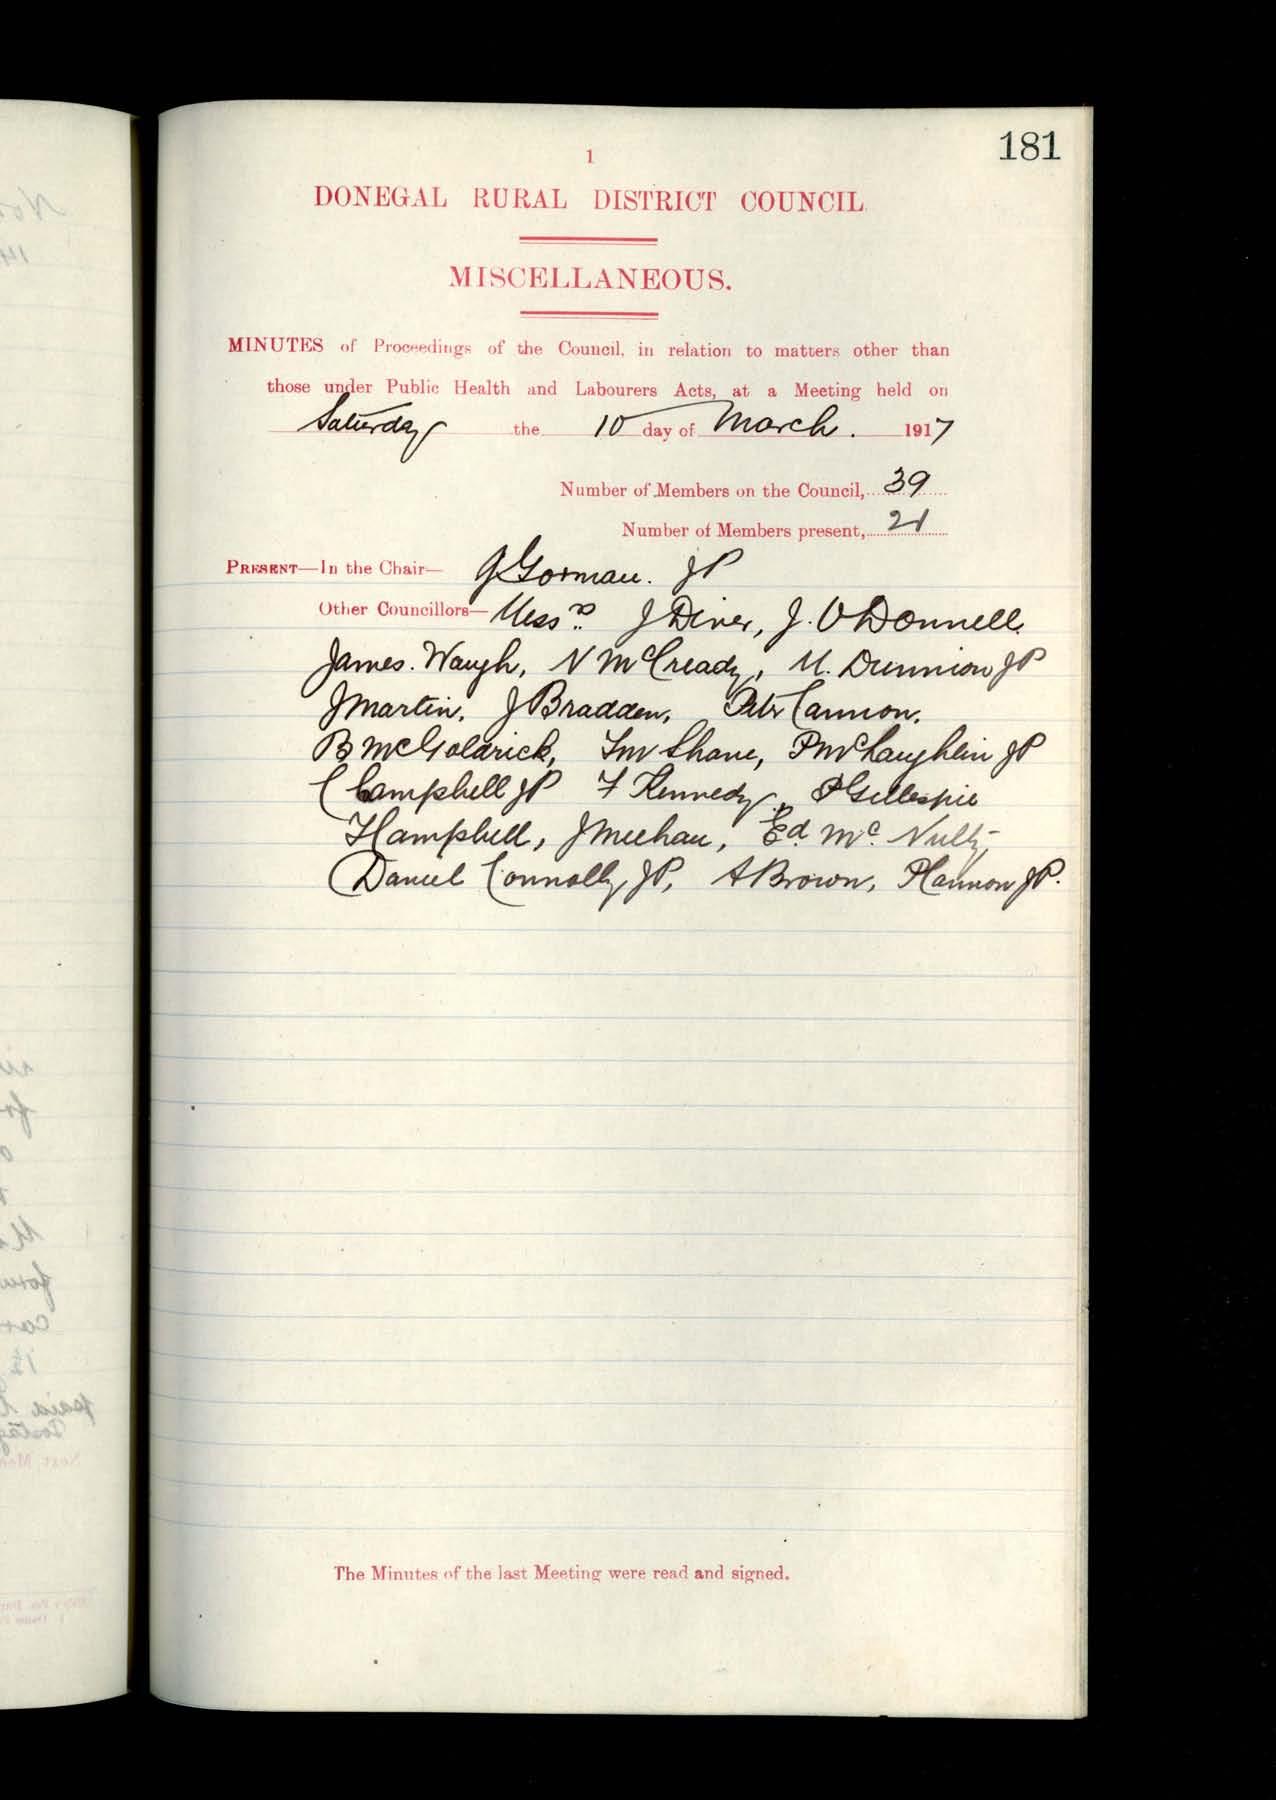 181
1
DONEGAL RURAL DISTRICT COUNCIL
MISCELLANEOUS.
MINUTES of Proceedings of the Council, in relation to matters other than
those under Public Health and Labourers Acts, at a Meeting held on
Saturday the 10 day of March. 1917
Number of Members on the Council, 39
Number of Members present, 21
PRESENT—In the Chair— J Gorman. JP
Other Councillors— Messrs J Diver, J. O'Donnell.
James. Waugh, N McCready, M. Dunnion JP
J Martin, J Bradden, Peter Cannon.
B McGoldrick, T McShane, P McLaughlin JP
C Campbell JP F Kennedy, P Gillespie
H Campbell, J Meehan, Ed. Mc. Nulty,
Daniel Connolly JP, A Brown, P Cannon JP.
The Minutes of the last Meeting were read and signed.